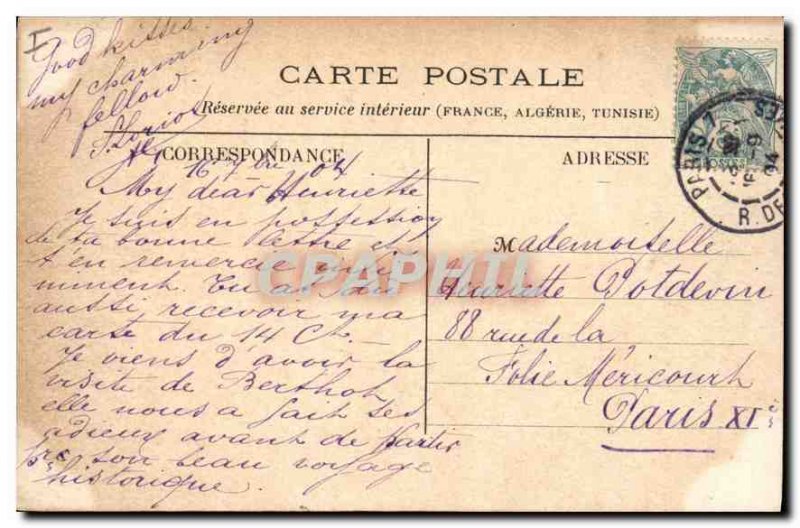 Good kisses
my charming
fellow.
CARTE POSTALE
Réservée au service intérieur (FRANCE, ALGÉRIE, TUNISIE)
CORRESPONDANCE
ADRESSE
16 7bre 04
My dear Henriette
Je suis en possession
de ta bonne lettre et
t'en remercie
aussi, recevoir ma
carte du 14 Ct.
Je viens d'avoir la
visite de Berthot
elle nous a fait ses
adieux avant de partir
pr son beau voyage
historique.
Mademoiselle
Henriette Potdevin
88 rue de la
Folie Méricourt
Paris XIe
PARIS 1
R. DE
POSTES
CPAPHIL